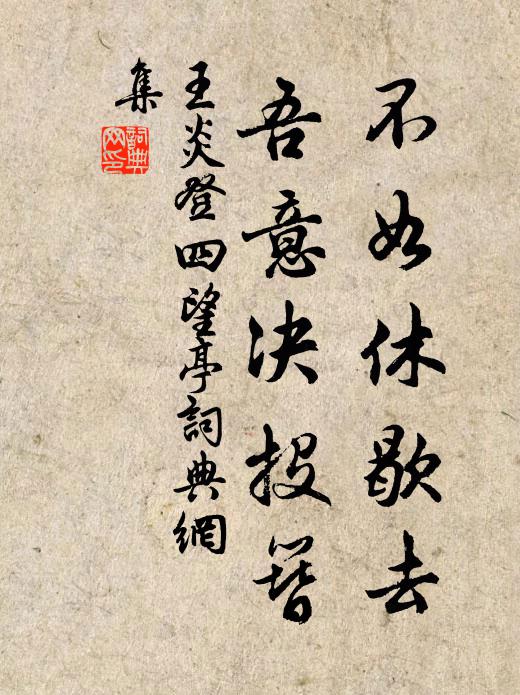 不如休歇去
吾意决投簪
王炎登四望亭詞典網
集
詞典
网印